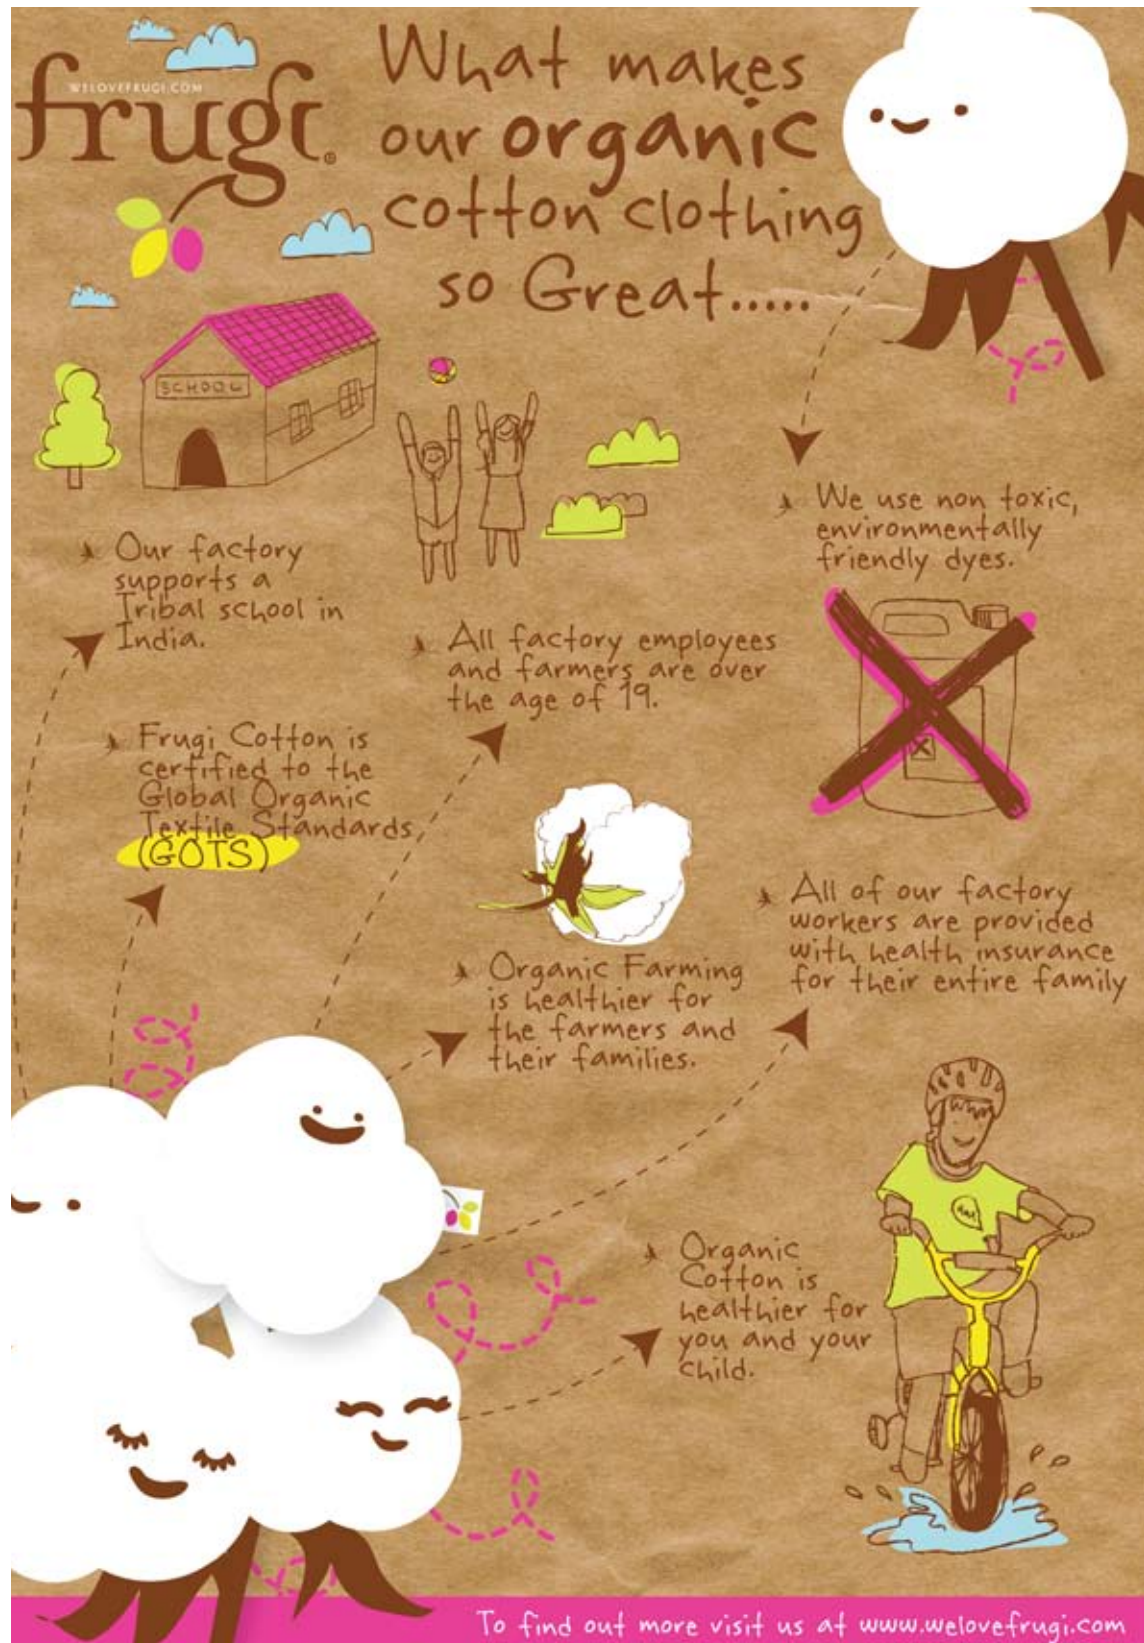 WELOVEFRUGI.COM
frugi®
What makes
our organic
cotton clothing
so Great.....
SCHOOL
We use non toxic,
environmentally
friendly dyes.
Our factory
supports a
Tribal school in
India.
All factory employees
and farmers are over
the age of 19.
Frugi Cotton is
certified to the
Global Organic
Textile Standards
(GOTS)
All of our factory
workers are provided
with health insurance
for their entire family
Organic Farming
is healthier for
the farmers and
their families.
Organic
Cotton is
healthier for
you and your
child.
To find out more visit us at www.welovefrugi.com